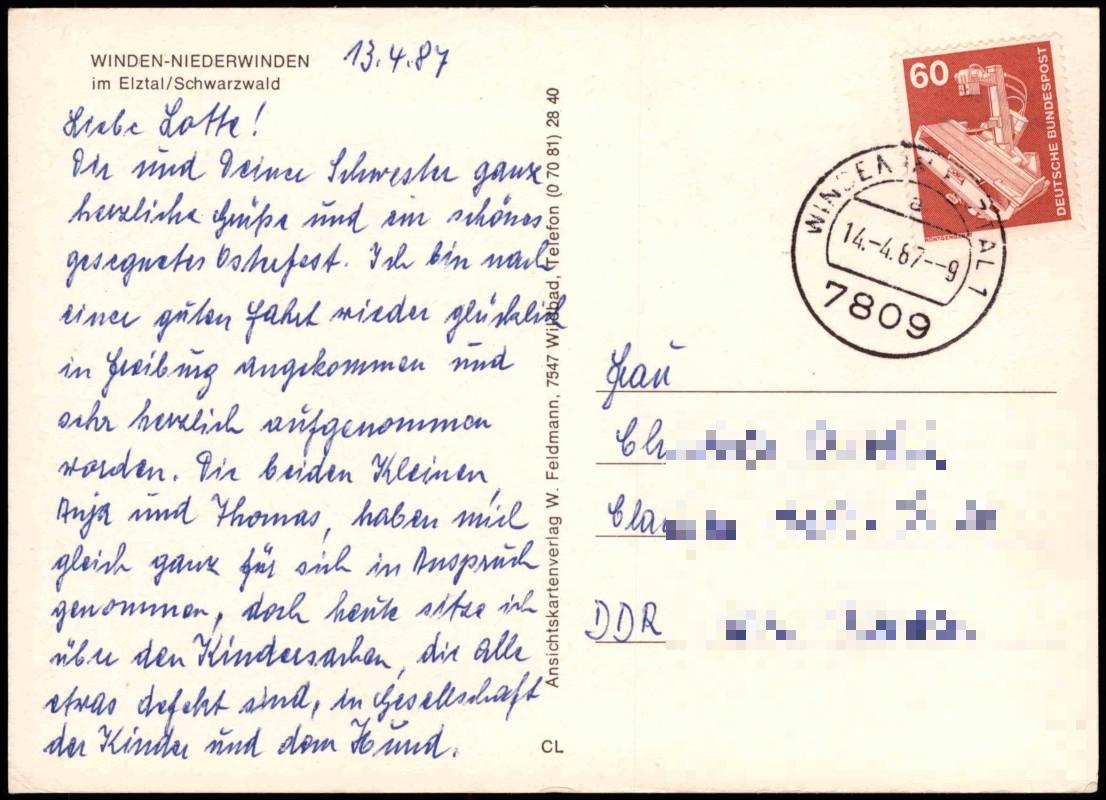 WINDEN-NIEDERWINDEN
im Elztal/Schwarzwald
13.4.87
Liebe Lotte!
Dir und Deiner Schwester ganz
herzliche Grüße und ein schönes
gesegnetes Osterfest. Ich bin nach
einer guten Fahrt wieder glücklich
in Freiburg angekommen und
sehr herzlich aufgenommen
worden. Die beiden Kleinen,
Anja und Thomas, haben mich
gleich ganz für sich in Anspruch
genommen, doch heute sitze ich
über den Kindersachen, die alle
etwas defekt sind, in Gesellschaft
der Kinder und dem Hund.
Ansichtskartenverlag W. Feldmann, 7547 Wildbad, Telefon (0 70 81) 28 40
CL
60
DEUTSCHE BUNDESPOST
WINDEN IM ELZTAL 1
a
14.-4.87--9
7809
Frau
DDR